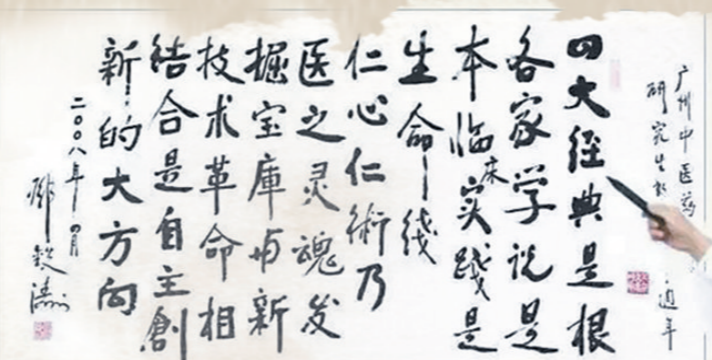 广州中医药
研究生
週年
四大经典是根
各家学说是
本临床实践是
生命线
仁心仁術乃
医之灵魂发
掘宝庫与新
技术革命相
结合是自主創
新的大方向
二〇〇八年四月
邓铁涛